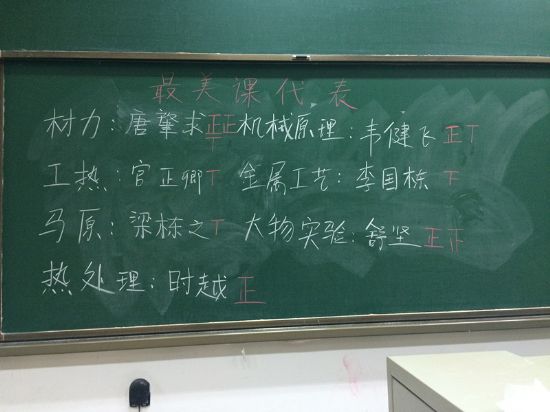 最美课代表
材力：唐肇求正正丅 机械原理：韦健飞 正丅
工热：官正卿丅 金属工艺：李国栋 下
马原：梁栋之丅 大物实验：舒坚 正正
热处理：时越 正